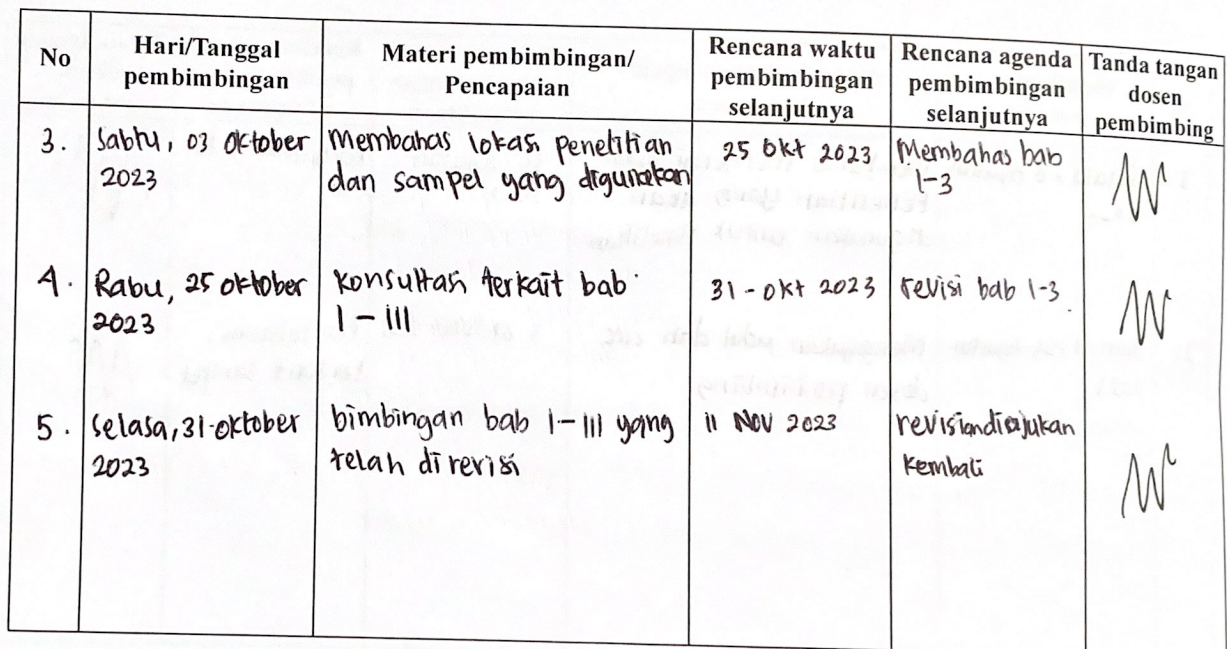 No
Hari/Tanggal
pembimbingan
Materi pembimbingan/
Pencapaian
Rencana waktu
pembimbingan
selanjutnya
Rencana agenda
pembimbingan
selanjutnya
Tanda tangan
dosen
pembimbing
3. Sabtu, 03 Oktober
2023
Membahas lokasi penelitian
dan sampel yang digunakan
25 Okt 2023
Membahas bab
1-3
4. Rabu, 25 oktober
2023
Konsultasi terkait bab
I - III
31 - Okt 2023
revisi bab 1-3
5. Selasa, 31 oktober
2023
bimbingan bab I - III yang
telah di revisi
11 Nov 2023
revisian diajukan
kembali